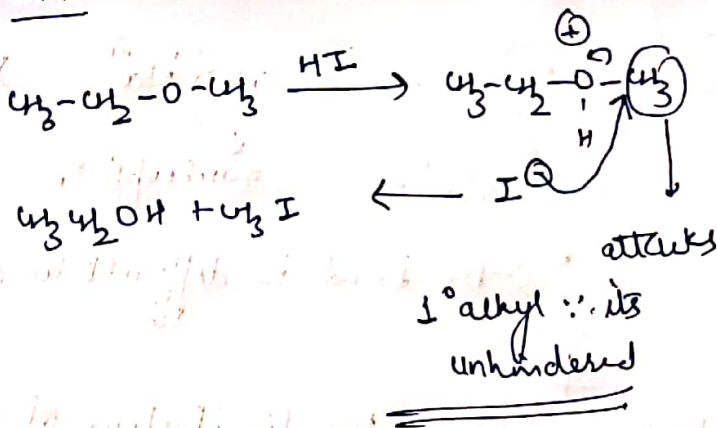 CH3-CH2-O-CH3 HI → CH3-CH2-O-CH3
⊕
H
CH3CH2OH + CH3I ← I⊖
attacks
1° alkyl ∵ its
unhindered